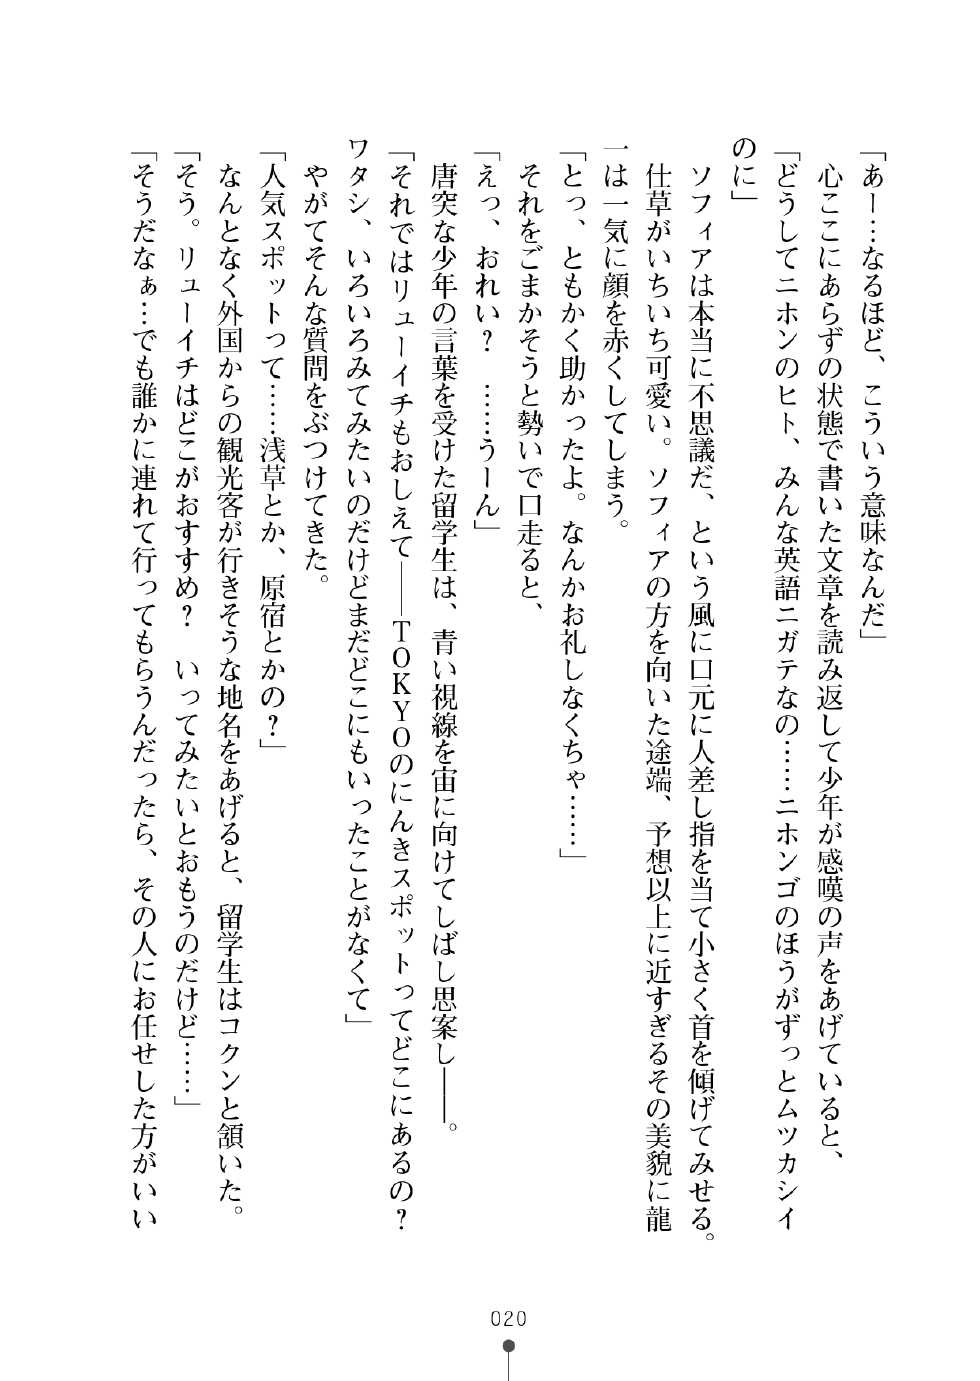 「あー…なるほど、こういう意味なんだ」
　心ここにあらずの状態で書いた文章を読み返して少年が感嘆の声をあげていると、
「どうしてニホンのヒト、みんな英語ニガテなの……ニホンゴのほうがずっとムツカシイ
のに」
　ソフィアは本当に不思議だ、という風に口元に人差し指を当て小さく首を傾げてみせる。
　仕草がいちいち可愛い。ソフィアの方を向いた途端、予想以上に近すぎるその美貌に龍
一は一気に顔を赤くしてしまう。
「とっ、ともかく助かったよ。なんかお礼しなくちゃ……」
　それをごまかそうと勢いで口走ると、
「えっ、おれい？　……うーん」
　唐突な少年の言葉を受けた留学生は、青い視線を宙に向けてしばし思案し――。
「それではリューイチもおしえて――TOKYOのにんきスポットってどこにあるの？
ワタシ、いろいろみてみたいのだけどまだどこにもいったことがなくて」
　やがてそんな質問をぶつけてきた。
「人気スポットって……浅草とか、原宿とかの？」
　なんとなく外国からの観光客が行きそうな地名をあげると、留学生はコクンと頷いた。
「そう。リューイチはどこがおすすめ？　いってみたいとおもうのだけど……」
「そうだなぁ…でも誰かに連れて行ってもらうんだったら、その人にお任せした方がいい
020